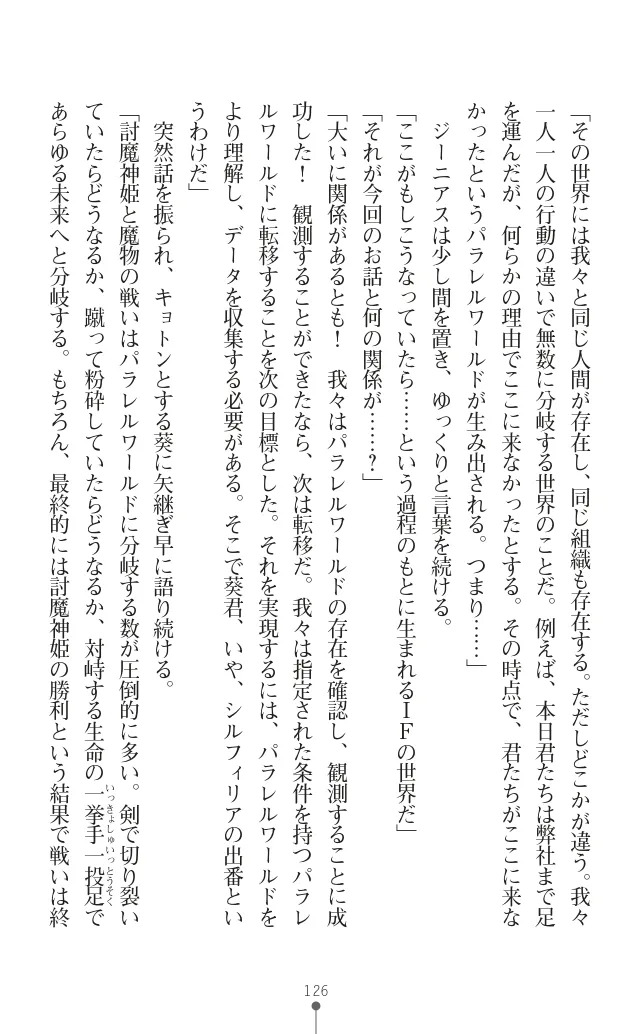 「その世界には我々と同じ人間が存在し、同じ組織も存在する。ただしどこかが違う。我々
一人一人の行動の違いで無数に分岐する世界のことだ。例えば、本日君たちは弊社まで足
を運んだが、何らかの理由でここに来なかったとする。その時点で、君たちがここに来な
かったというパラレルワールドが生み出される。つまり……」
　ジーニアスは少し間を置き、ゆっくりと言葉を続ける。
「ここがもしこうなっていたら……という過程のもとに生まれるＩＦの世界だ」
「それが今回のお話と何の関係が……？」
「大いに関係があるとも！　我々はパラレルワールドの存在を確認し、観測することに成
功した！　観測することができたなら、次は転移だ。我々は指定された条件を持つパラレ
ルワールドに転移することを次の目標とした。それを実現するには、パラレルワールドを
より理解し、データを収集する必要がある。そこで葵君、いや、シルフィリアの出番とい
うわけだ」
　突然話を振られ、キョトンとする葵に矢継ぎ早に語り続ける。
「討魔神姫と魔物の戦いはパラレルワールドに分岐する数が圧倒的に多い。剣で切り裂い
ていたらどうなるか、蹴って粉砕していたらどうなるか、対峙する生命の一挙手一投足で
いっきょしゅいっとうそく
あらゆる未来へと分岐する。もちろん、最終的には討魔神姫の勝利という結果で戦いは終
126